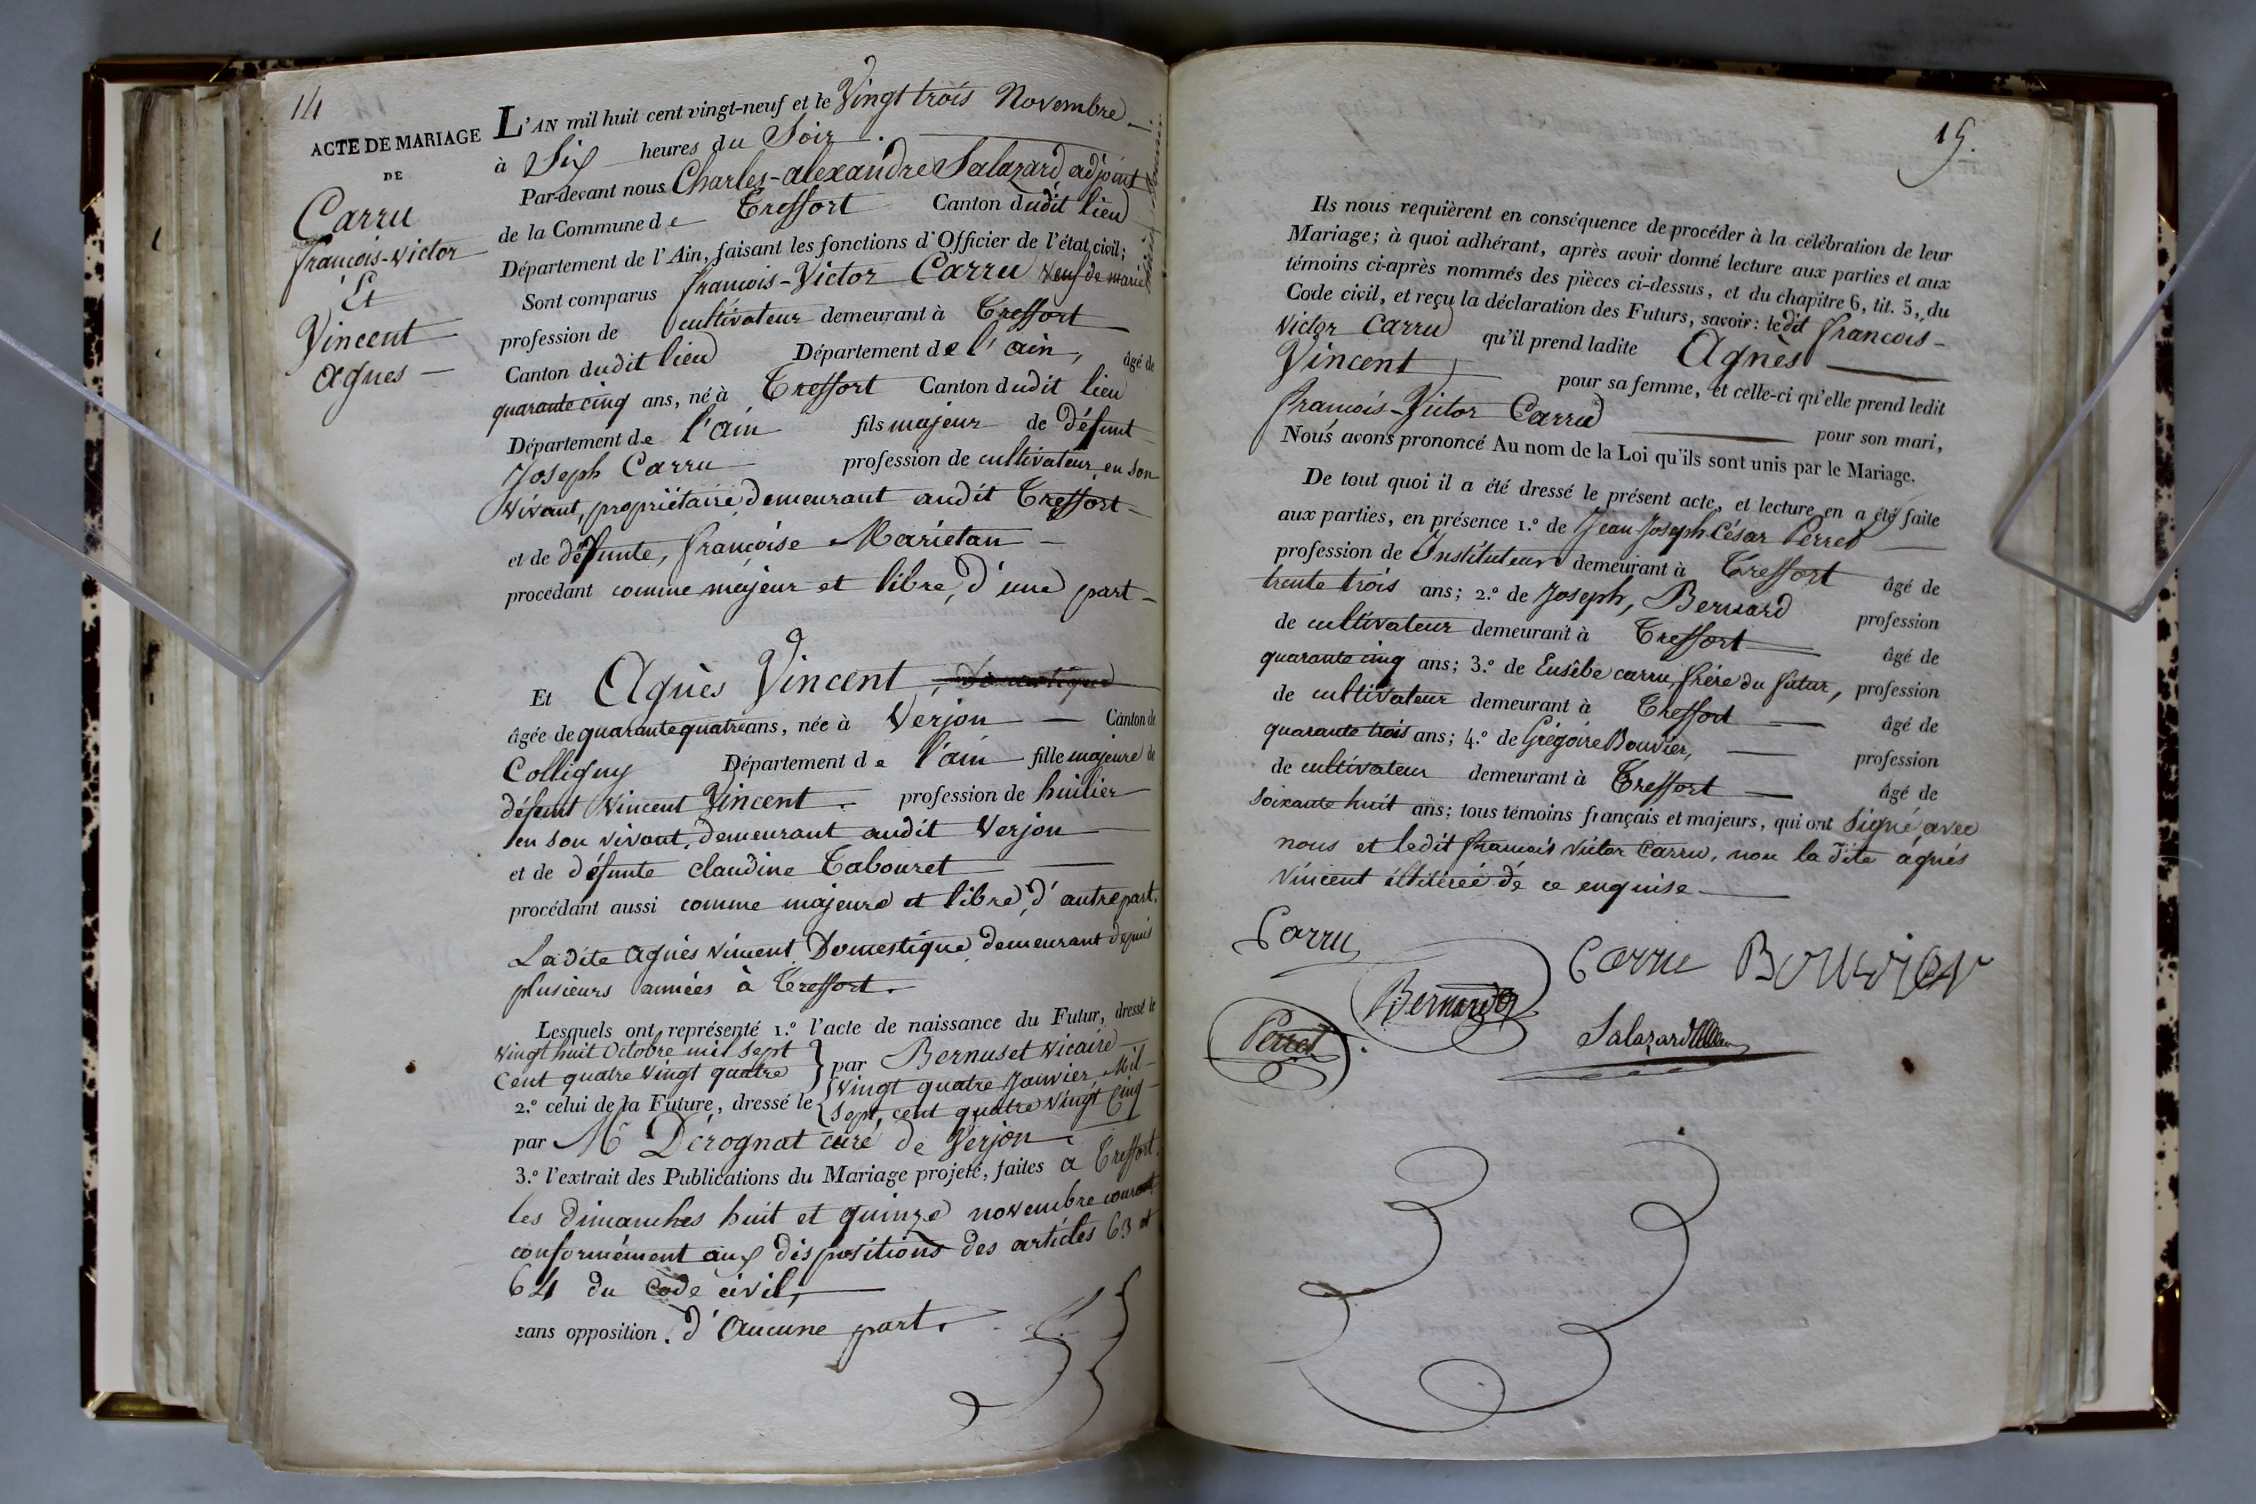 14
ACTE DE MARIAGE
DE
Carru
françois-victor
Et
Vincent
agnes
L'AN mil huit cent vingt-neuf et le Vingt trois Novembre
à Six heures du Soir.
Par-devant nous Charles-alexandre Salazard adjoint
de la Commune de Treffort Canton dudit lieu
Département de l'Ain, faisant les fonctions d'Officier de l'état civil;
Sont comparus françois-Victor Carru veuf de marie
profession de cultivateur demeurant à Treffort
Canton dudit lieu Département de l'ain, âgé de
quarante cinq ans, né à Treffort Canton dudit lieu
Département de l'ain fils majeur de défunt
Joseph Carru profession de cultivateur en son
vivant, propriétaire demeurant audit Treffort
et de défunte, françoise Marietan
procédant comme majeur et libre, d'une part
Et Agnès Vincent, domestique
âgée de quarante quatre ans, née à Verjon Canton de
Colligny Département de l'ain fille majeure de
défunt Vincent Vincent. profession de huilier
en son vivant, demeurant audit Verjon
et de défunte claudine Tabouret
procédant aussi comme majeure et libre, d'autre part.
La dite agnès vincent Domestique demeurant depuis
plusieurs années à Treffort.
Lesquels ont représenté 1.º l'acte de naissance du Futur, dressé le
vingt huit Octobre mil sept
cent quatre vingt quatre } par Bernuset vicaire
2.º celui de la Future, dressé le { vingt quatre Janvier Mil
sept, cent quatre vingt Cinq
par Mr Dérognat curé de Verjon
3.º l'extrait des Publications du Mariage projeté, faites a Treffort.
les dimanches huit et quinze novembre courant
conformément aux dispositions des articles 63 et
64 du code civil,
sans opposition. d'aucune part.
15.
Ils nous requièrent en conséquence de procéder à la célébration de leur
Mariage; à quoi adhérant, après avoir donné lecture aux parties et aux
témoins ci-après nommés des pièces ci-dessus, et du chapitre 6, tit. 5, du
Code civil, et reçu la déclaration des Futurs, savoir: ledit françois-
victor Carru qu'il prend ladite Agnès
Vincent, pour sa femme, et celle-ci qu'elle prend ledit
françois-Victor Carru pour son mari,
Nous avons prononcé Au nom de la Loi qu'ils sont unis par le Mariage.
De tout quoi il a été dressé le présent acte, et lecture en a été faite
aux parties, en présence 1.º de Jean-Joseph César Perret
profession de Instituteur demeurant à Treffort âgé de
trente trois ans; 2.º de Joseph, Bernard profession
de cultivateur demeurant à Treffort âgé de
quarante cinq ans; 3.º de Eusèbe carru, frère du futur, profession
de cultivateur demeurant à Treffort âgé de
quarante trois ans; 4.º de Grégoire Bouvier, profession
de cultivateur demeurant à Treffort âgé de
soixante huit ans; tous témoins français et majeurs, qui ont signé avec
nous et ledit françois victor Carru, non la dite agnès
vincent illitérée de ce enquise.
Carru
Carru Bouvier
Bernard
Perret
Salazard